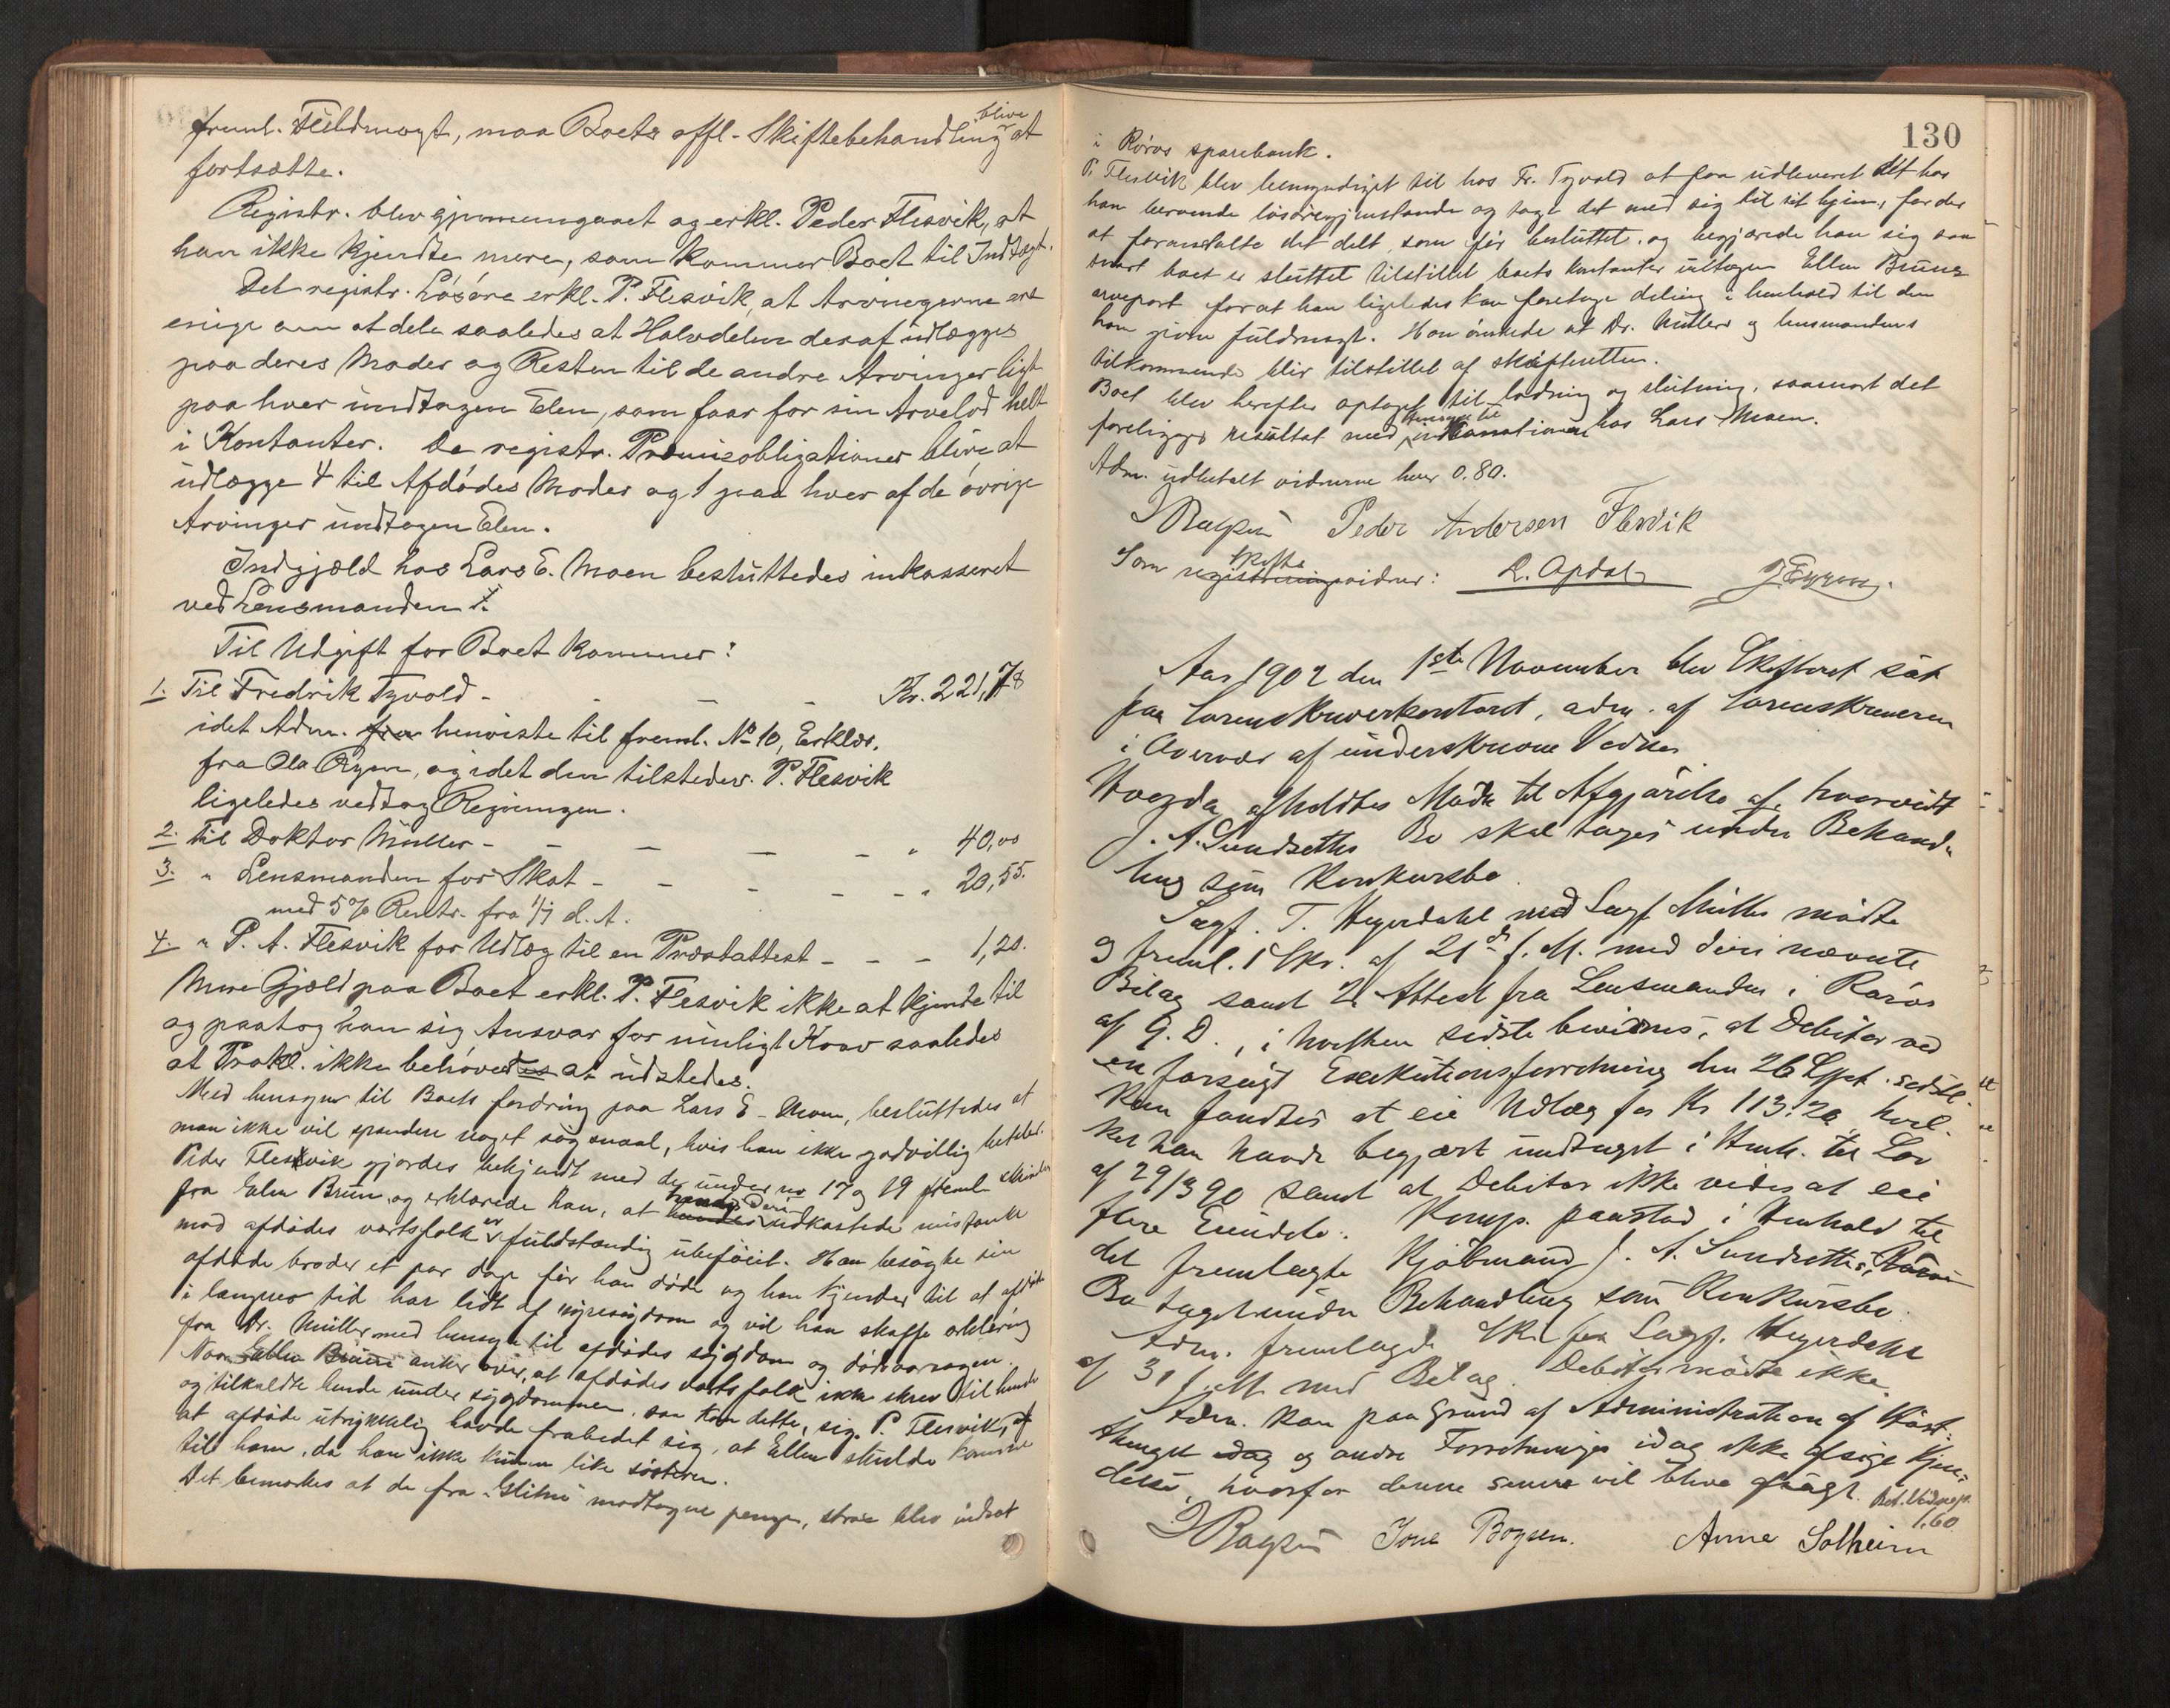 freml. Fuldmagt, maa Boets offl. Skiftebehandling blive at
fortsætte.
Registr. blev gjennemgaaet og erkl. Peder Flesvik, at
han ikke kjendte mere, som kommer Boet til Indtægt.
Det registr. Løsøre erkl. P. Flesvik, at Arvingerne ere
enige om at dele saaledes at Halvdelen deraf udlægges
paa deres Moder og Resten til de andre Arvinger ligt
paa hver undtagen Elen, som faar for sin Arvelod helt
i Kontanter. De registr. Præmieobligationer blive at
udlægge 4 til Afdødes Moder og 1 paa hver af de øvrige
Arvinger undtagen Elen.
Indgjæld hos Lars E. Moen besluttedes inkasseret
ved Lensmanden.
Til Udgift for Boet kommer:
1. Til Fredrik Tyvold - - - - Kr. 221,78
idet Adm. henviste til freml. No 10, Erklær.
fra Ola Ryen, og idet den tilstedev. P. Flesvik
ligeledes vedtog Regningen.
2. Til Doktor Müller - - - - " 40,00
3. " Lensmanden for Skat - - - - " 20,55.
med 5% Rentr. fra 1/7 d. A.
4. " P. A. Flesvik for Udlæg til en Præstattest - - - 1,20.
Mere Gjæld paa Boet erkl. P. Flesvik ikke at kjende til
og paatog han sig Ansvar for muligt Krav saaledes
at Prokl. ikke behøvedes at udstedes.
Med hensyn til Boets fordring paa Lars E. Moen, besluttedes at
man ikke vil spandere noget søgsmaal, hvis han ikke godvillig betaler.
Peder Flesvik gjordes bekjendt med de under no 17 og 19 freml. skrivelser
fra Elen Brun, og erklærede han, at hendes deri udkastede mistanke
mod afdødes vertsfolk er fuldstændig ubeføiet. Han besøgte sin
afdøde broder et par dage før han døde og han kjender til at afdøde
i længere tid har lidt af nyresygdom og vil han skaffe erklæring
fra Dr. Müller med hensyn til afdødes sygdom og dødsaarsagen.
Naar Ellen Brun anker over, at afdødes vertsfolk ikke skrev til hende
og tilkaldte hende under sygdommen, saa kom dette, sig. P. Flesvik, af
at afdøde utrykkelig havde frabedet sig, at Ellen skulde komme
til ham, da han ikke kunde like søsteren.
Det bemerkes at de fra "Glitne" modtagne penge, strax blev indsat
130
i Røros sparebank.
P. Flesvik blev bemyndiget til hos Fr. Tyvold at faa udleveret alt hos
ham beroende løsøregjenstande og tage det med sig til sit hjem, for der
at foranstalte det delt, som før besluttet, og begjærede han sig saa
snart boet er sluttet tilstillet boets kontanter undtagen Ellen Bruns
arvepart for at han ligeledes kan foretage deling i henhold til den
ham givne fuldmagt. Han ønskede at Dr. Müllers og lensmandens
tilkommende blir tilstillet af skifteretten.
Boet blev herefter optaget til lodning og slutning, saasnart det
foreligger resultat med hensyn til inkassationen hos Lars Moen.
Adm. udbetalt vidnerne hver 0.80.
Peder Andersen Flesvik
Som skifte registreringsvidner: L. Opdal
Aar 1902 den 1ste November blev Skifteret sat
paa Sorenskriverkontoret, adm. af Sorenskriveren
i Overvær af underskrevne Vidner.
Hvorda afholdtes Møde til Afgjørelse af, hvorvidt
J. A. Sundseths Bo skal tages under Behand-
ling som Konkursbo.
Sagf. T. Hegerdahl med Sagf. Müller mødte
og freml. 1 Skr. af 21de f. M. med deri nævnte
Bilag samt 2 Attest fra Lensmanden i Røros
af G. D., i hvilken sidste bevidnes, at Debitor ved
en forsøgt Exekutionsforretning den 26 Sept. sidstl.
kun fandtes at eie Udlæg for Kr 113.20, hvil-
ket han havde begjært undtaget i Henh. til Lov
af 29/3 90 samt at Debitor ikke vides at eie
flere Eiendele. Komp. paastod i Henhold til
det fremlagte Kjøbmand J. A. Sundseths, Røros
Bo taget under Behandling som Konkursbo.
Adm. fremlagde Skr. fra Sagf. Hegerdahl
af 31 f. M. med Bilag. Debitor mødte ikke.
Adm. kan paa Grund af Administration af Høst-
thinget idag og andre Forretninger idag ikke afsige Kjen-
delse, hvorfor denne senere vil blive afsagt. Bet. Vidnep.
1,60
Jone Bogsen. Anne Solheim